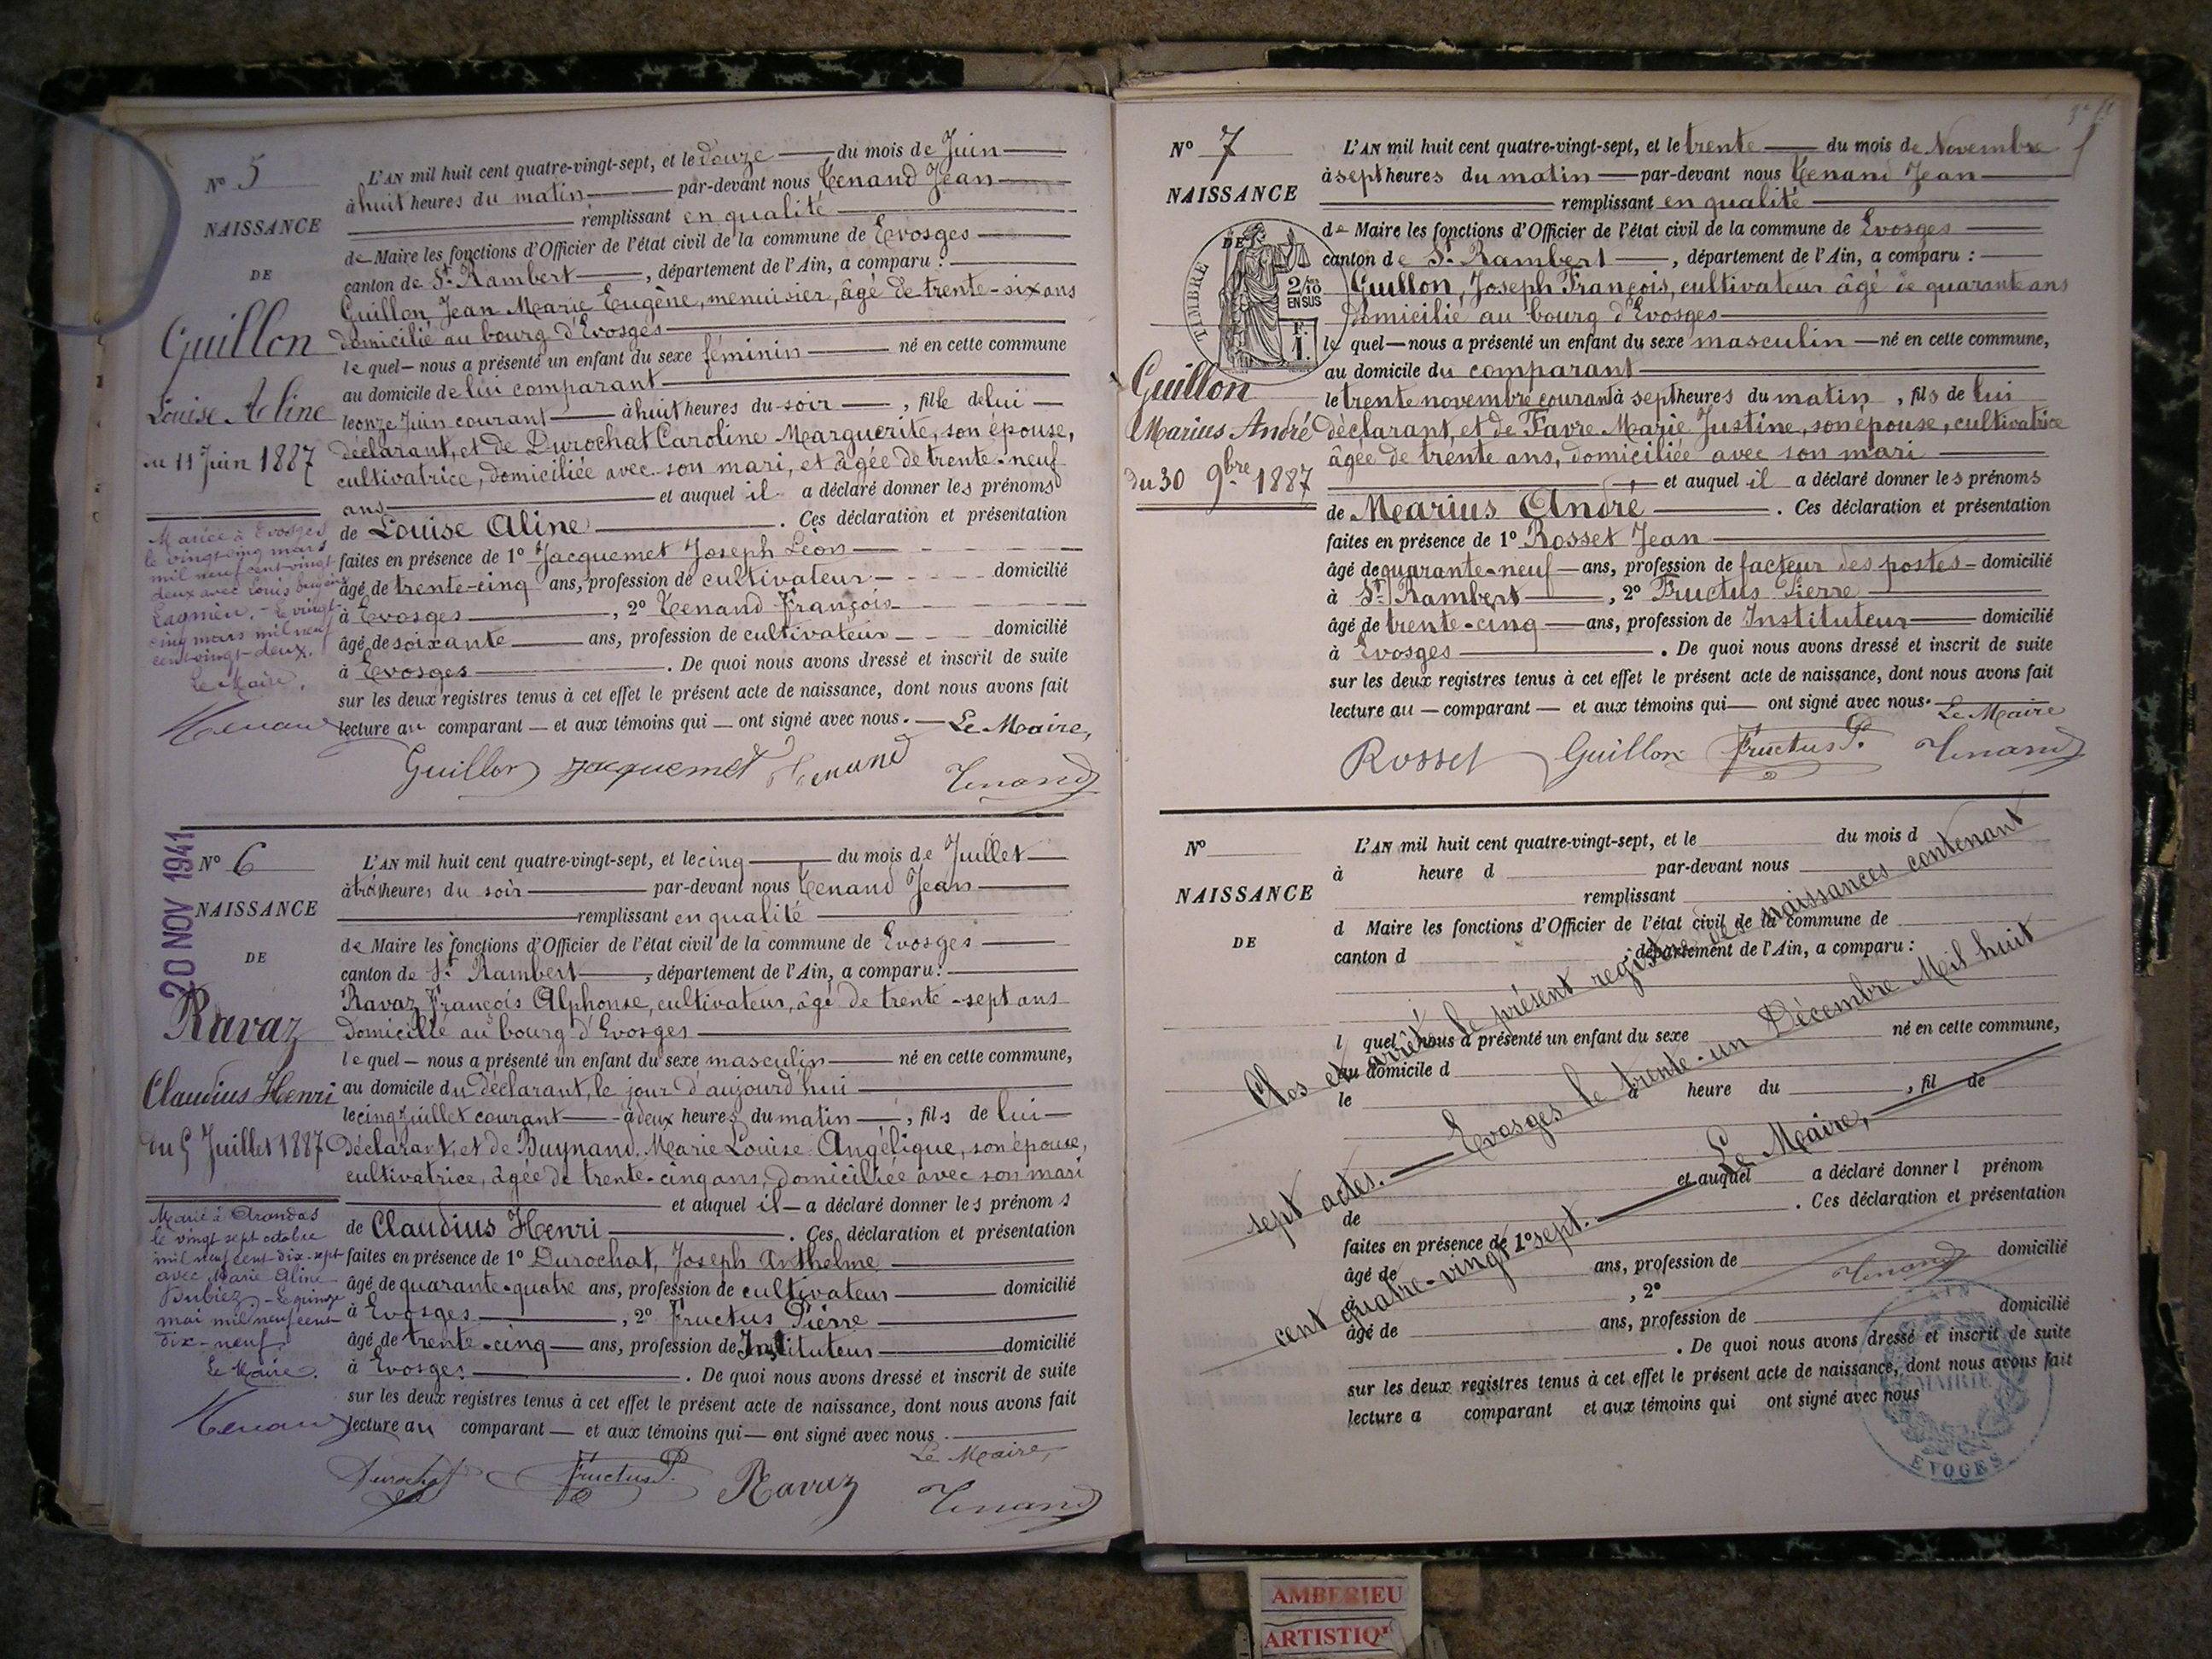 N° 5
NAISSANCE
DE
Guillon
Louise Aline
du 11 Juin 1887
Mariée à Evosges
le vingt-cinq mars
mil neuf cent vingt-
deux avec Louis Eugène
Lagnieu. - Le vingt-
cinq mars mil neuf
cent vingt-deux.
Le Maire,
Tenand
L'AN mil huit cent quatre-vingt-sept, et le douze du mois de Juin
à huit heures du matin par-devant nous Tenand Jean
remplissant en qualité
de Maire les fonctions d'Officier de l'état civil de la commune de Evosges
canton de St Rambert, département de l'Ain, a comparu :
Guillon Jean Marie Eugène, menuisier, âgé de trente-six ans
domicilié au bourg d'Evosges
le quel nous a présenté un enfant du sexe féminin né en cette commune
au domicile de lui comparant
le onze Juin courant à huit heures du soir, fille de lui
déclarant, et de Durochat Caroline Marguerite, son épouse,
cultivatrice, domiciliée avec son mari, et âgée de trente-neuf
ans et auquel il a déclaré donner les prénoms
de Louise Aline. Ces déclaration et présentation
faites en présence de 1° Jacquemet Joseph Léon
âgé de trente-cinq ans, profession de cultivateur domicilié
à Evosges, 2° Tenand François
âgé de soixante ans, profession de cultivateur domicilié
à Evosges. De quoi nous avons dressé et inscrit de suite
sur les deux registres tenus à cet effet le présent acte de naissance, dont nous avons fait
lecture au comparant et aux témoins qui ont signé avec nous. Le Maire,
Guillon Jacquemet Tenand Tenand
20 NOV 1941
N° 6
NAISSANCE
DE
Ravaz
Claudius Henri
du 5 Juillet 1887
Marié à Arandas
le vingt sept octobre
mil neuf cent dix-sept
avec Marie Aline
Dubiez - Le quinze
mai mil neuf cent
dix-neuf.
Le Maire.
Tenand
L'AN mil huit cent quatre-vingt-sept, et le cinq du mois de Juillet
à trois heures du soir par-devant nous Tenand Jean
remplissant en qualité
de Maire les fonctions d'Officier de l'état civil de la commune de Evosges
canton de St Rambert, département de l'Ain, a comparu :
Ravaz François Alphonse, cultivateur, âgé de trente-sept ans
domicilié au bourg d'Evosges
le quel nous a présenté un enfant du sexe masculin né en cette commune,
au domicile du déclarant, le jour d'aujourd'hui
le cinq Juillet courant à deux heures du matin, fils de lui
déclarant, et de Buynand Marie Louise Angélique, son épouse,
cultivatrice, âgée de trente-cinq ans, domiciliée avec son mari
et auquel il a déclaré donner les prénoms
de Claudius Henri. Ces déclaration et présentation
faites en présence de 1° Durochat, Joseph Anthelme
âgé de quarante-quatre ans, profession de cultivateur domicilié
à Evosges, 2° Fructus Pierre
âgé de trente-cinq ans, profession de Instituteur domicilié
à Evosges. De quoi nous avons dressé et inscrit de suite
sur les deux registres tenus à cet effet le présent acte de naissance, dont nous avons fait
lecture au comparant et aux témoins qui ont signé avec nous.
Le Maire,
Durochat Fructus P. Ravaz Tenand
N° 7
NAISSANCE
DE
TIMBRE
2/10
EN SUS
F.
1.
Guillon
Marius André
du 30 9bre 1887
L'AN mil huit cent quatre-vingt-sept, et le trente du mois de Novembre
à sept heures du matin par-devant nous Tenand Jean
remplissant en qualité
de Maire les fonctions d'Officier de l'état civil de la commune de Evosges
canton de St Rambert, département de l'Ain, a comparu :
Guillon, Joseph François, cultivateur âgé de quarante ans
domicilié au bourg d'Evosges
le quel nous a présenté un enfant du sexe masculin né en cette commune,
au domicile du comparant
le trente novembre courant à sept heures du matin, fils de lui
déclarant, et de Favre Marie Justine, son épouse, cultivatrice
âgée de trente ans, domiciliée avec son mari
et auquel il a déclaré donner les prénoms
de Marius André. Ces déclaration et présentation
faites en présence de 1° Rosset Jean
âgé de quarante-neuf ans, profession de facteur des postes domicilié
à St Rambert, 2° Fructus Pierre
âgé de trente-cinq ans, profession de Instituteur domicilié
à Evosges. De quoi nous avons dressé et inscrit de suite
sur les deux registres tenus à cet effet le présent acte de naissance, dont nous avons fait
lecture au comparant et aux témoins qui ont signé avec nous. Le Maire
Rosset Guillon Fructus P. Tenand
N°
NAISSANCE
DE
L'AN mil huit cent quatre-vingt-sept, et le du mois d
à heure d par-devant nous
remplissant
d Maire les fonctions d'Officier de l'état civil de la commune de
canton d département de l'Ain, a comparu :
l quel nous a présenté un enfant du sexe né en cette commune,
au domicile d
le à heure du, fil de
et auquel a déclaré donner l prénom
de. Ces déclaration et présentation
faites en présence de 1°
âgé de ans, profession de domicilié
à, 2°
âgé de ans, profession de domicilié
. De quoi nous avons dressé et inscrit de suite
sur les deux registres tenus à cet effet le présent acte de naissance, dont nous avons fait
lecture a comparant et aux témoins qui ont signé avec nous
Clos et arrêté le présent registre de naissances contenant
sept actes. Evosges le trente-un Décembre Mil huit
cent quatre-vingt sept. Le Maire,
Tenand
AIN
MAIRIE
EVOGES
AMBERIEU
ARTISTIQ